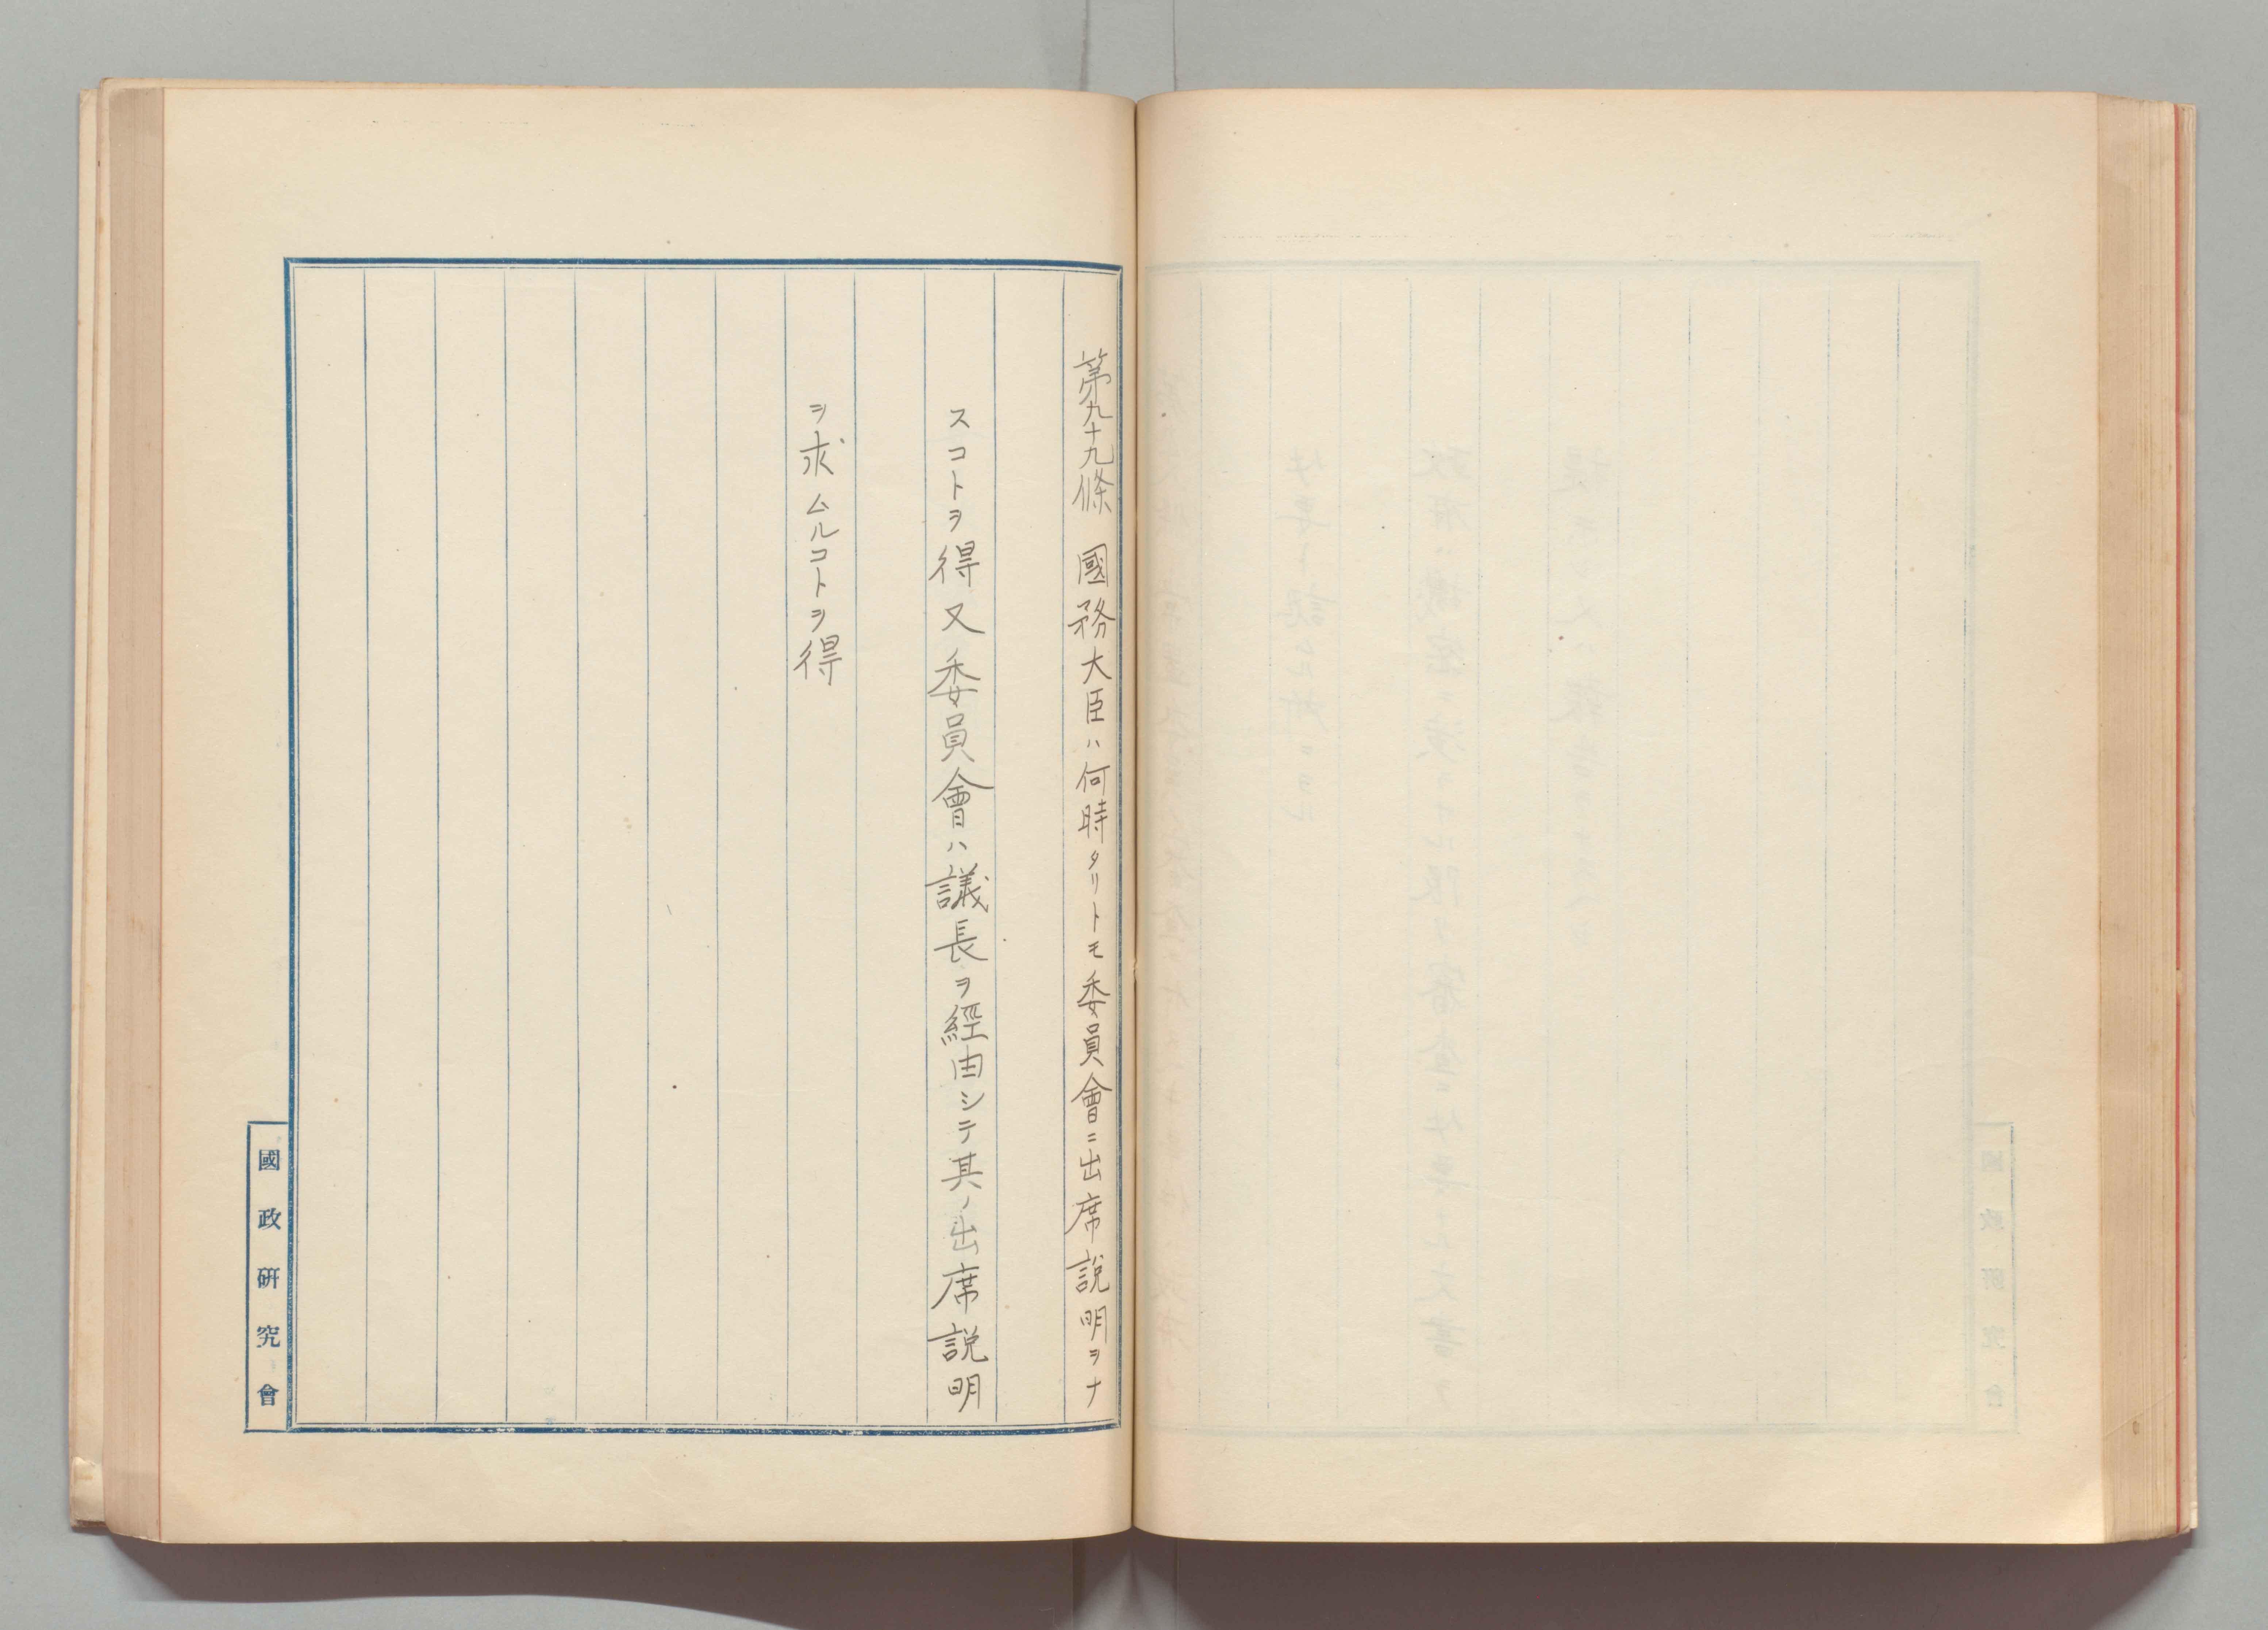 第九十九條　國務大臣ハ何時タリトモ委員會ニ出席説明ヲナ
スコトヲ得又委員會ハ議長ヲ經由シテ其ノ出席説明
ヲ求ムルコトヲ得
國政研究會